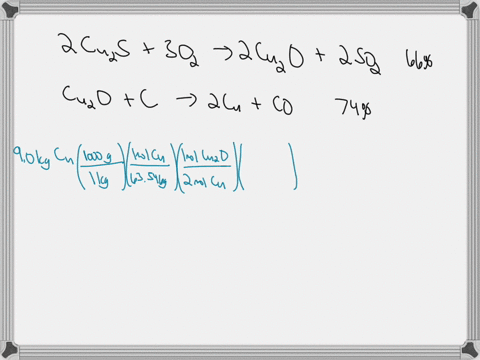 2Cu₂S + 3O₂ → 2Cu₂O + 2SO₂ 66%
Cu₂O + C → 2Cu + CO 74%
9.0 kg Cu (1000 g / 1 kg) (1 mol Cu / 63.546g) (1 mol Cu₂O / 2 mol Cu) ( )